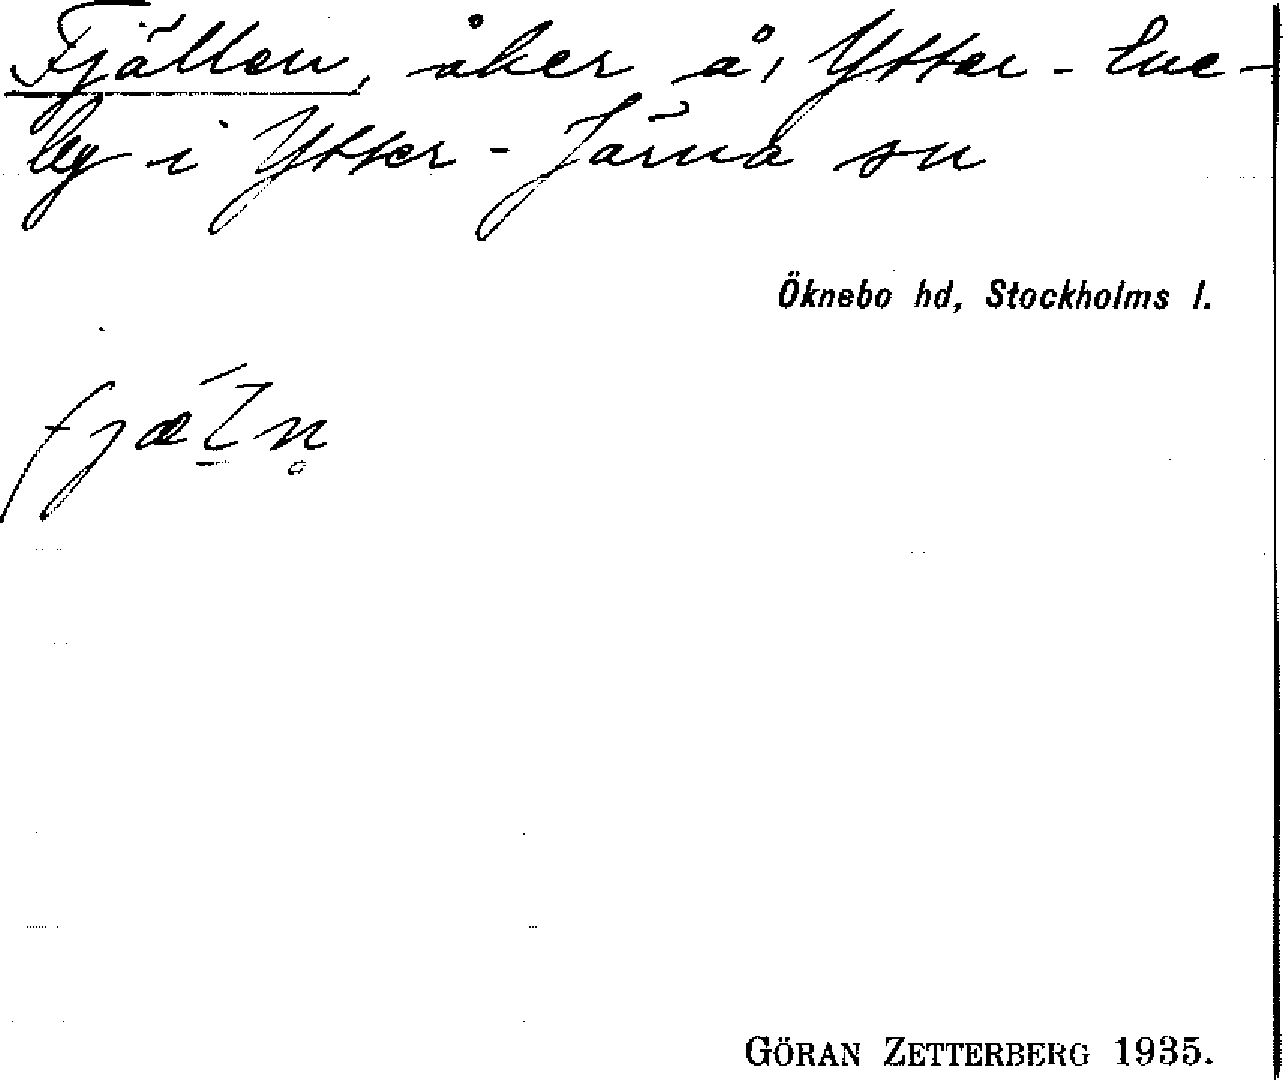 Fjällen, åker å, Ytter-Ene-
by i Ytter-Järna sn
Öknebo hd, Stockholms l.
fjæ´l̲n̥
GÖRAN ZETTERBERG 1935.